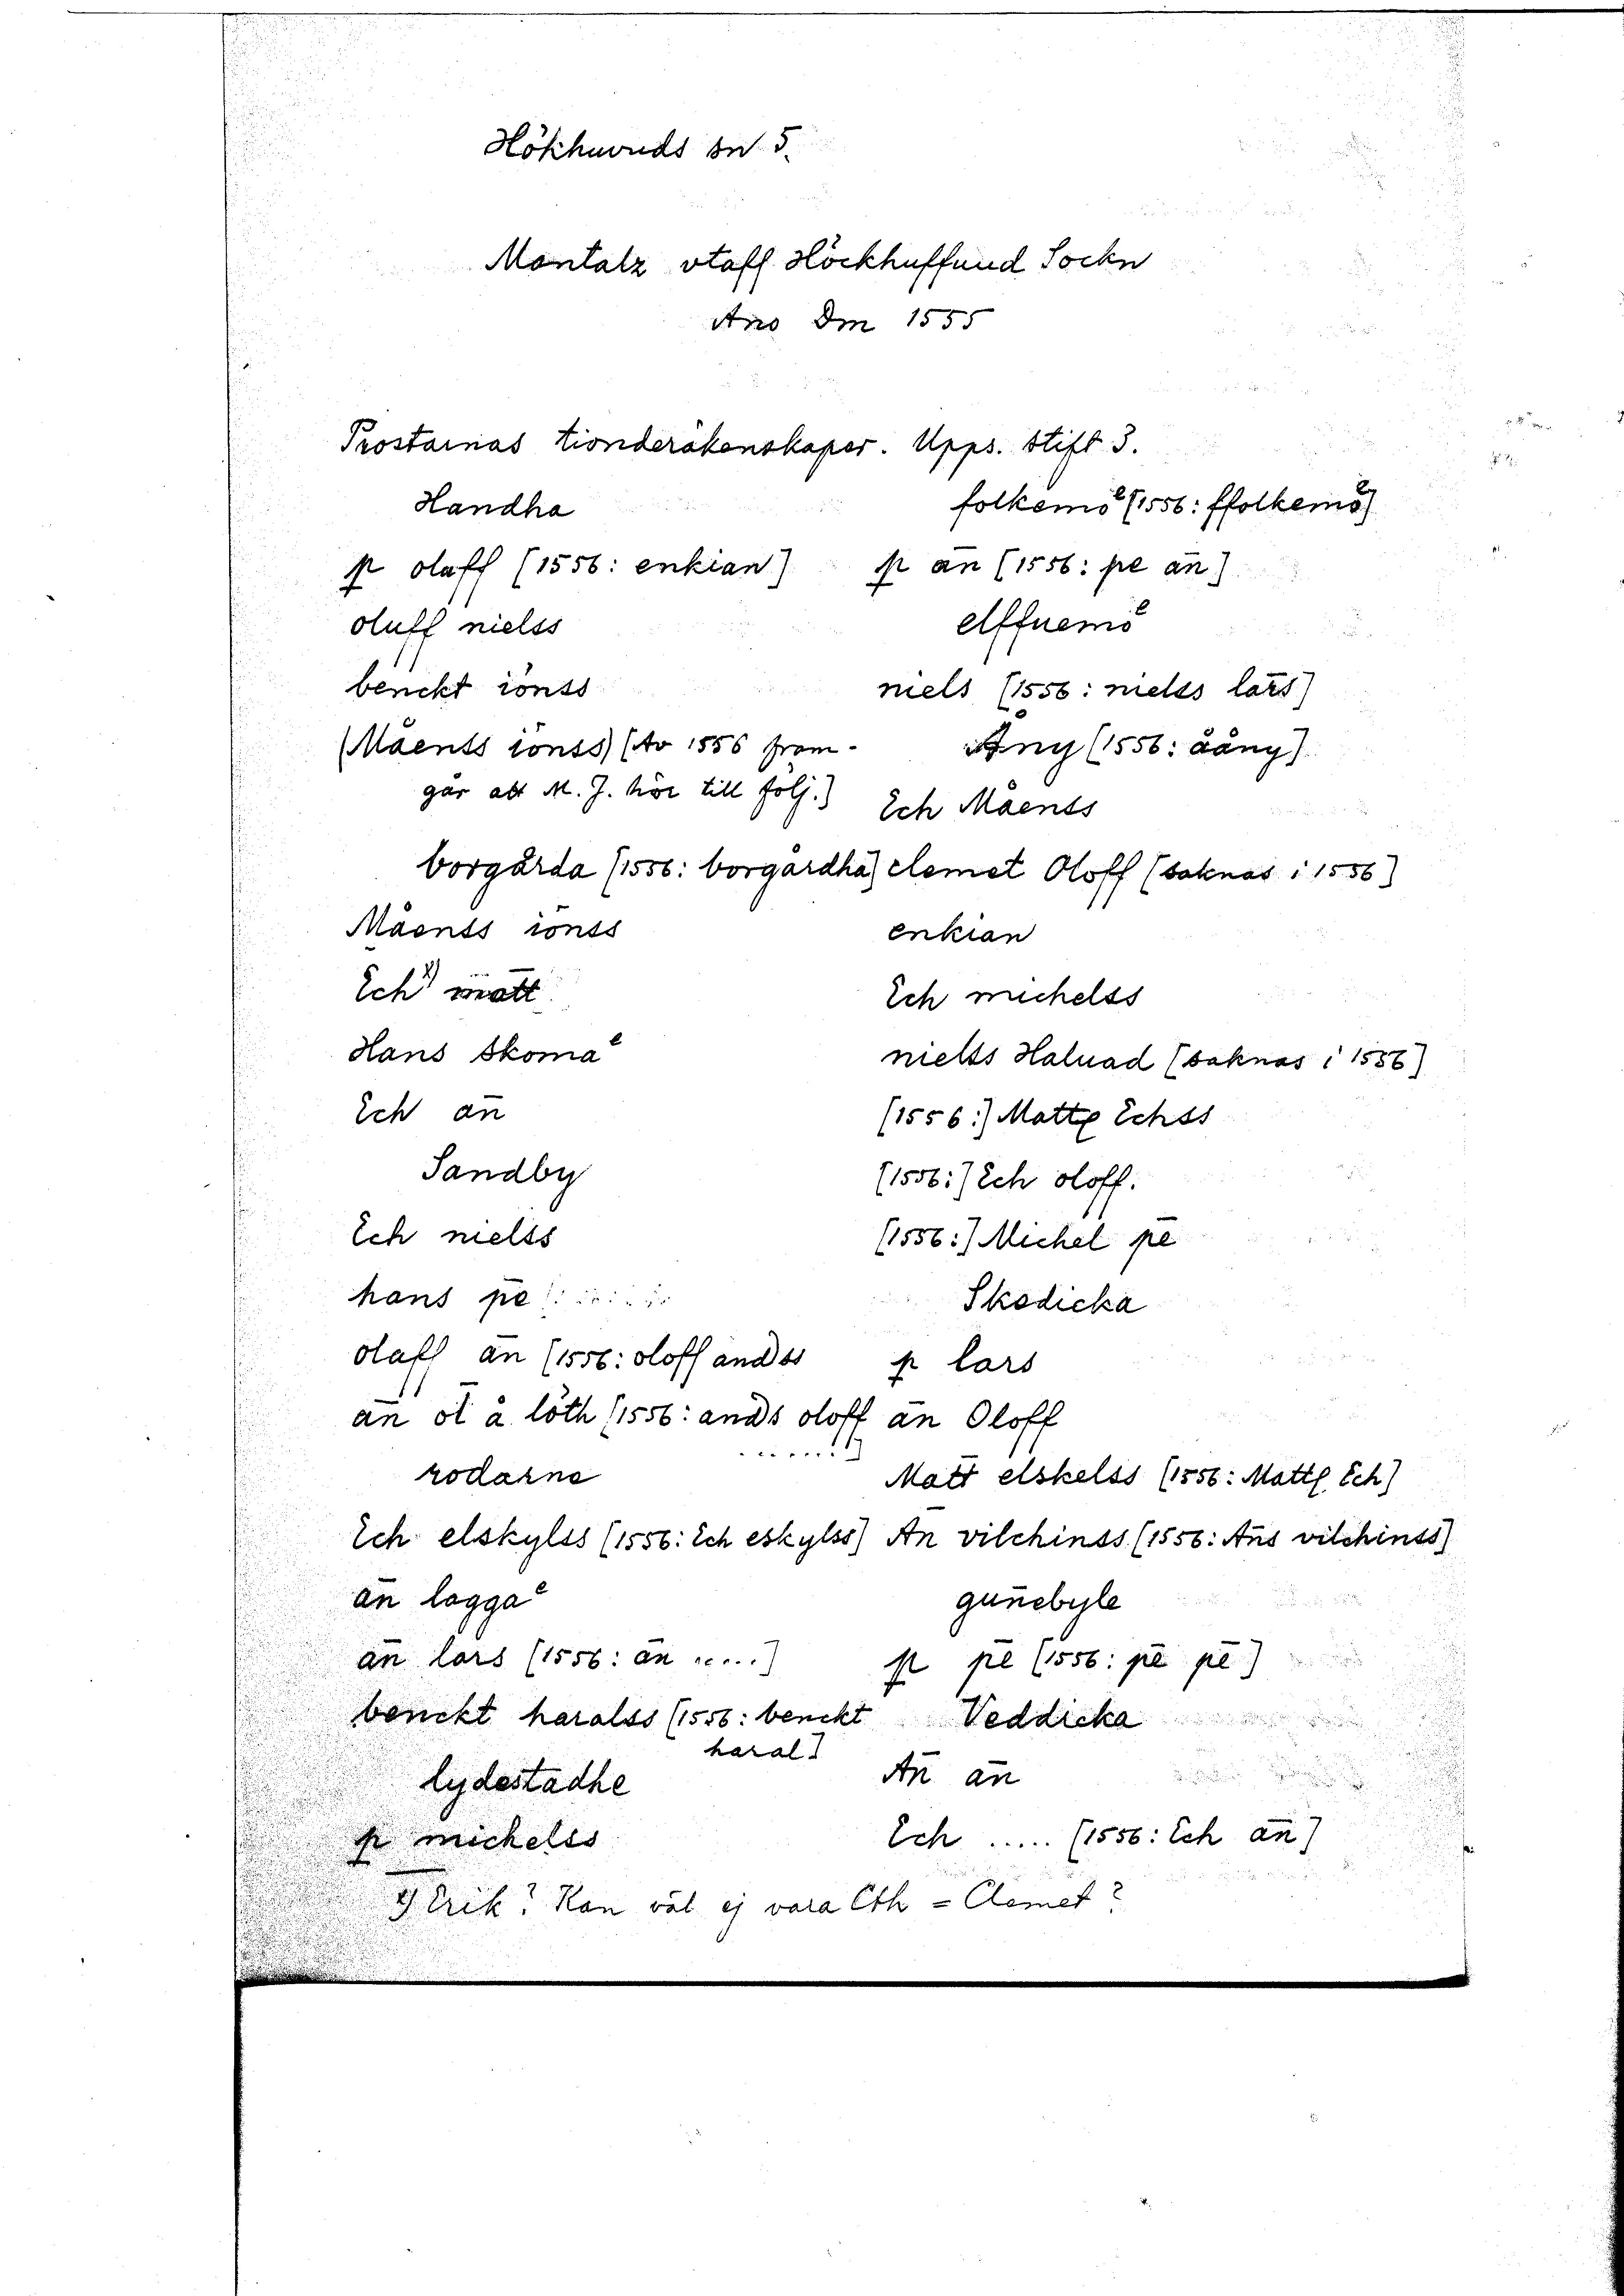 Hökhuvuds sn 5.
Mantalz vtaff Höckhuffuud Sockn
Ano Dm 1555
Prostarnas tionderäkenskaper. Upps. stift 3.
Handha
p olaff [1556: enkian]
oluff nielss
benckt iönss
(Måenss iönss) [Av 1556 fram-
går att M. J. hör till följ.]
borgårda [1556: borgårdha]
Måenss iönss
Ech x) matt
Hans skomaᵉ
Ech an̄
Sandby
Ech nielss
hans pe
olaff an̄ [1556: oloff andss
an̄ ol å löth [1556: ands oloff
.......]
rodarne
Ech elskylss [1556: Ech eskylss]
an̄ laggaᵉ
an̄ lars [1556: an̄ .....]
benckt haralss [1556: benckt
haral]
lydestadhe
p michelss
folkemoᵉ [1556: ffolkemoᵉ]
p an̄ [1556: pe an̄]
elffuemoᵉ
niels [1556: nielss lars]
Åny [1556: ååny]
Ech Måenss
clemet Oloff [saknas i 1556]
enkian
Ech michelss
nielss Haluad [saknas i 1556]
[1556:] Matts Echss
[1556:] Ech oloff.
[1556:] Michel pē
Skedicka
p lars
an̄ Oloff
Matt elskelss [1556: Matts Ech]
An vilchinss [1556: An̄s vilchinss]
gun̄ebyle
p pē [1556: pē pē]
Veddicka
An̄ an̄
Ech ..... [1556: Ech an̄]
x) Erik? Kan väl ej vara Cth = Clemet?